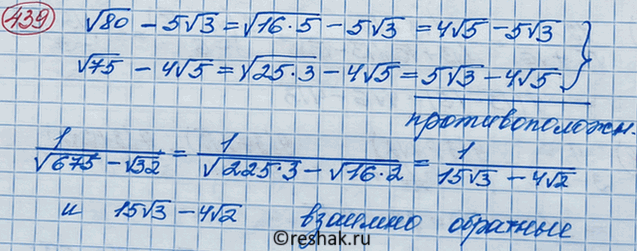 439 √80 - 5√3 = √16·5 - 5√3 = 4√5 - 5√3
√75 - 4√5 = √25·3 - 4√5 = 5√3 - 4√5
противоположн.
1/(√675 - √32) = 1/(√225·3 - √16·2) = 1/(15√3 - 4√2)
и 15√3 - 4√2 взаимно обратные
©reshak.ru